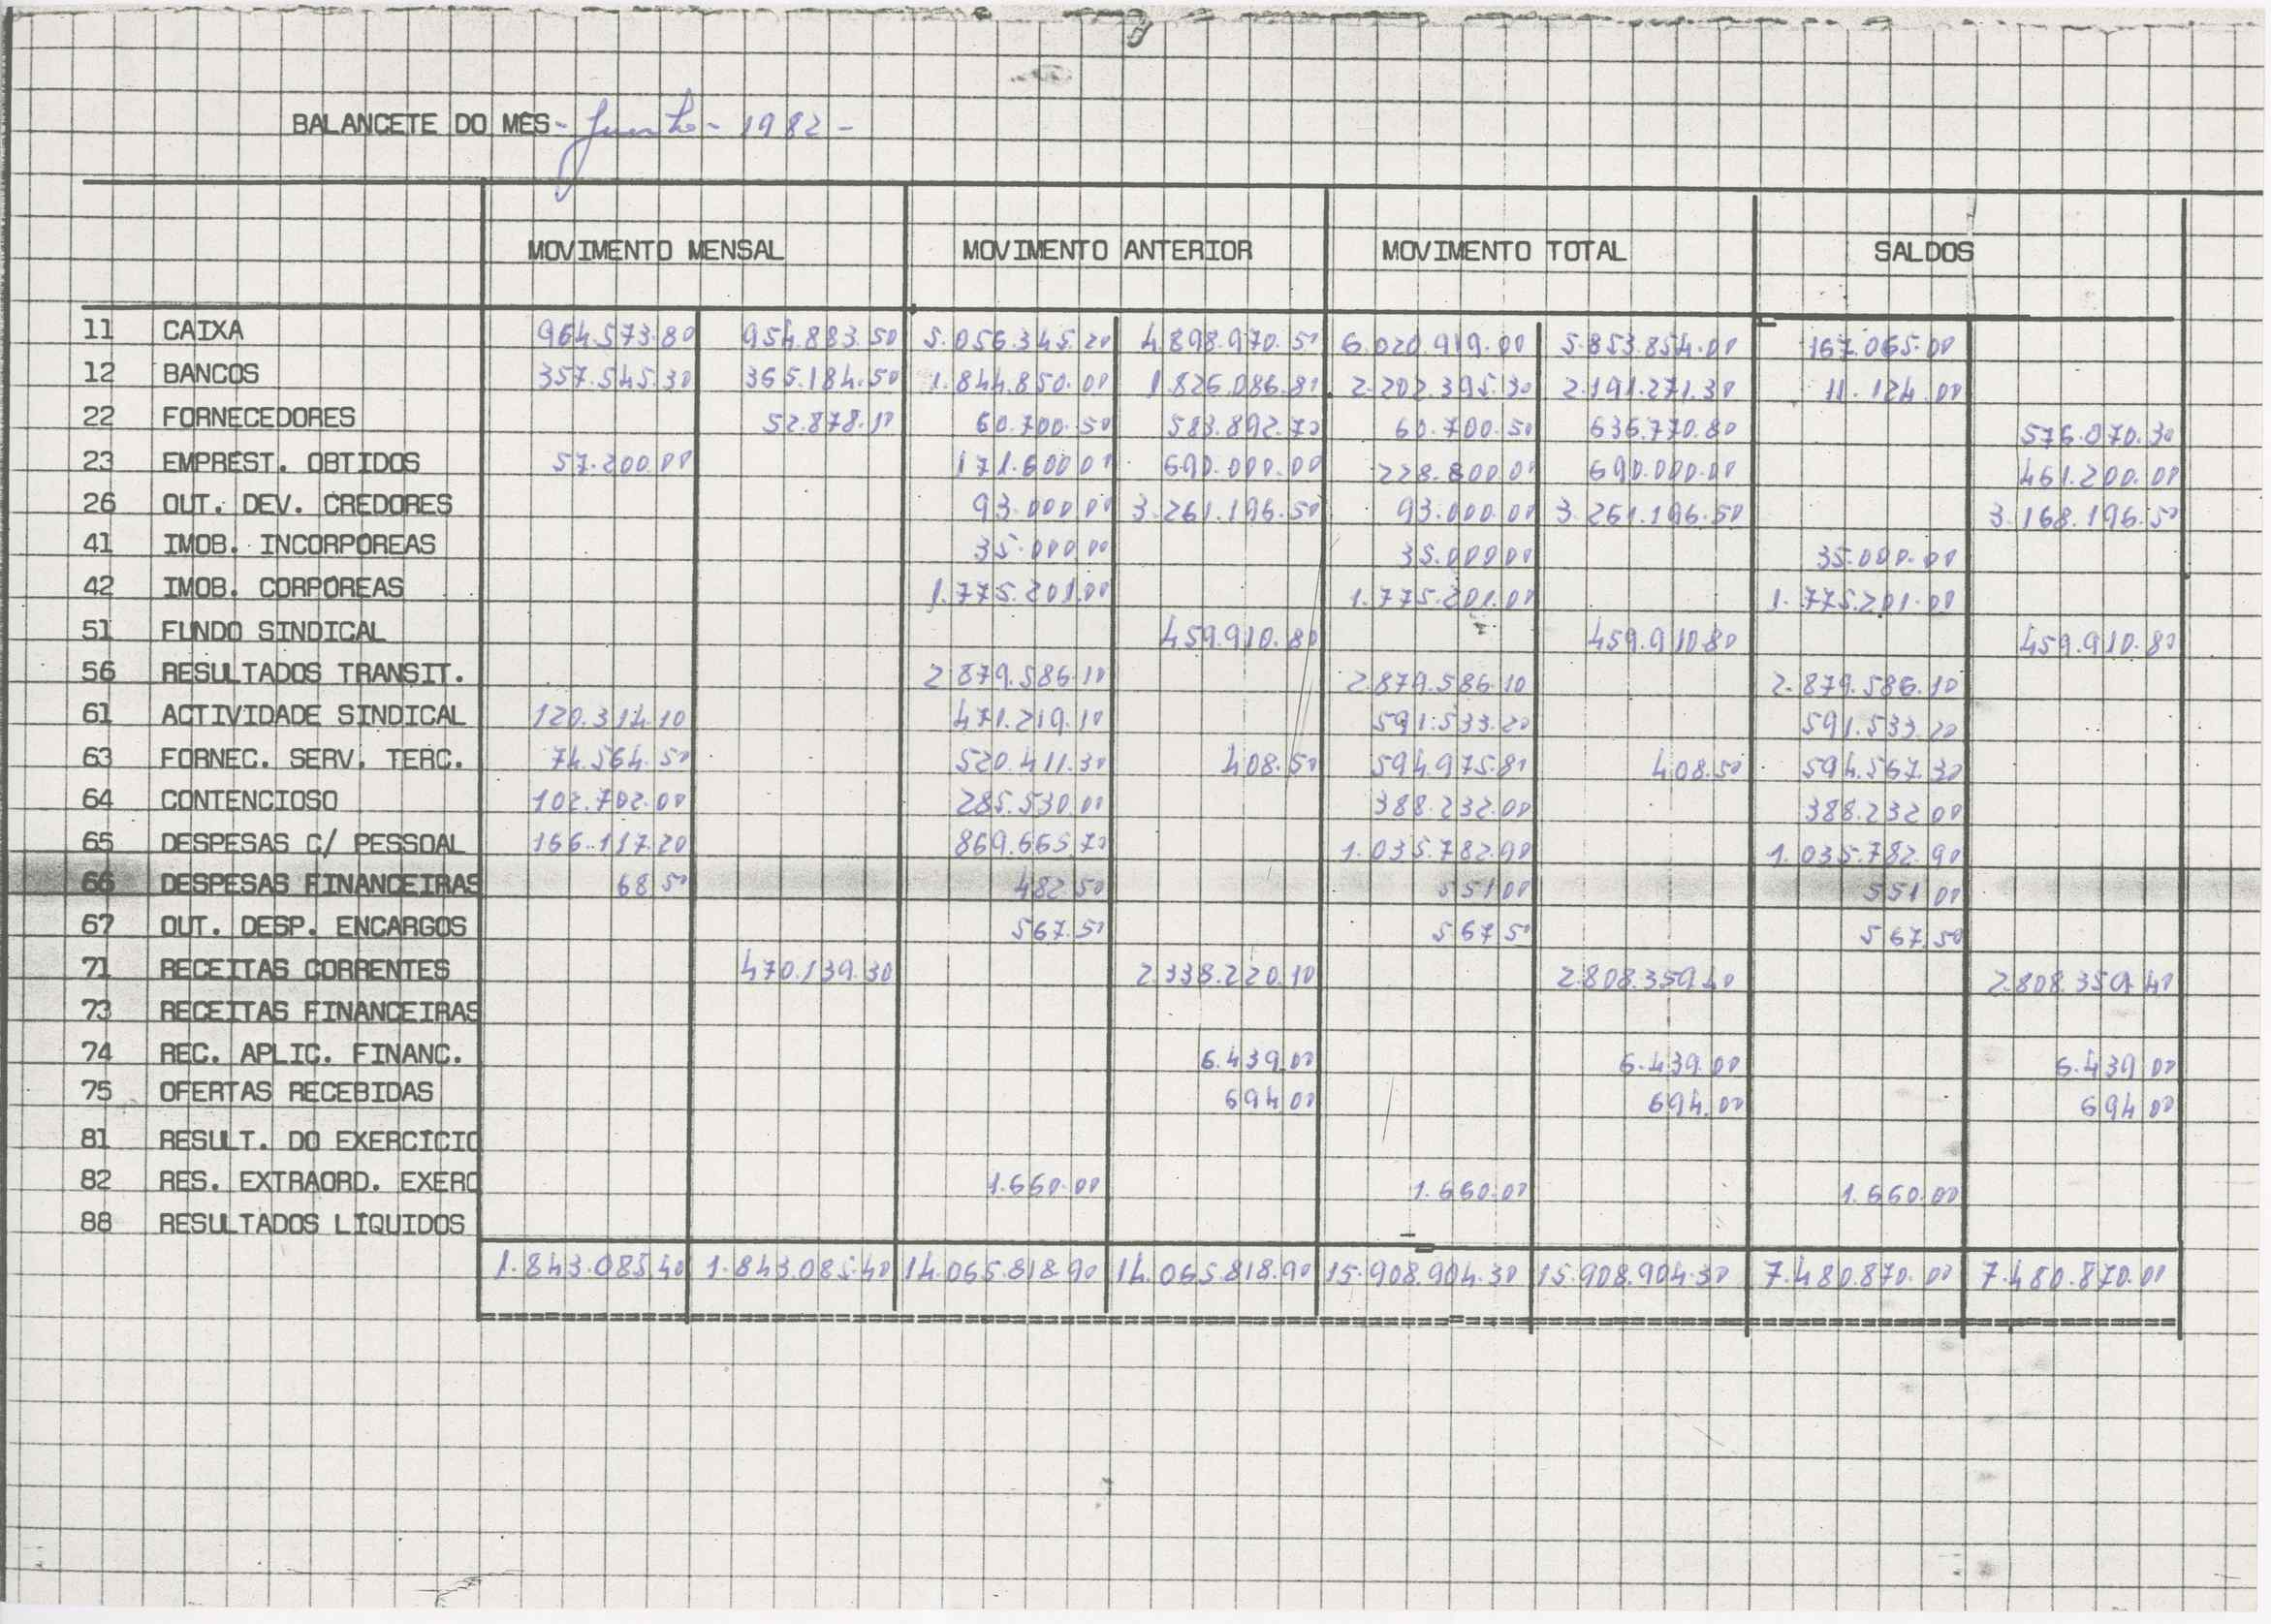 BALANCETE DO MÊS - Junho - 1982 -
MOVIMENTO MENSAL MOVIMENTO ANTERIOR MOVIMENTO TOTAL SALDOS
11 CAIXA 964.573.80 954.883.50 5.056.345.20 4.898.970.50 6.020.919.00 5.853.854.00 167.065.00
12 BANCOS 357.545.30 365.184.50 1.844.850.00 1.826.086.80 2.202.395.30 2.191.271.30 11.124.00
22 FORNECEDORES 52.878.10 60.700.50 583.892.70 60.700.50 636.770.80 576.070.30
23 EMPREST. OBTIDOS 57.200.00 171.600 00 690.000.00 228.800.00 690.000.00 461.200.00
26 OUT. DEV. CREDORES 93.000 00 3.261.196.50 93.000.00 3.261.196.50 3.168.196.50
41 IMOB. INCORPOREAS 35.000 00 35.000 00 35.000.00
42 IMOB. CORPOREAS 1.775.201.00 1.775.201.00 1.775.201.00
51 FUNDO SINDICAL 459.910.80 459.910 80 459.910.80
56 RESULTADOS TRANSIT. 2 879.586.10 2.879.586.10 2.879.586.10
61 ACTIVIDADE SINDICAL 120.314.10 471.219.10 591.533.20 591.533.20
63 FORNEC. SERV. TERC. 74.564.50 520.411.30 408.50 594.975.80 408.50 594.567.30
64 CONTENCIOSO 102.702.00 285.530.00 388.232.00 388.232 00
65 DESPESAS C/ PESSOAL 166.117.20 869.665.70 1.035.782.90 1.035.782.90
66 DESPESAS FINANCEIRAS 68 50 482 50 551 00 551 00
67 OUT. DESP. ENCARGOS 567.50 567 50 567.50
71 RECEITAS CORRENTES 470.139.30 2.338.220.10 2.808.359 40 2.808.359.40
73 RECEITAS FINANCEIRAS
74 REC. APLIC. FINANC. 6.439.00 6.439.00 6.439 00
75 OFERTAS RECEBIDAS 694 00 694.00 694 00
81 RESULT. DO EXERCÍCIO
82 RES. EXTRAORD. EXERC 1.660.00 1.660.00 1.660.00
88 RESULTADOS LÍQUIDOS
1.843.085 40 1.843.085.40 14.065.818.90 14.065.818.90 15.908.904.30 15.908.904.30 7.480.870.00 7.480.870.00